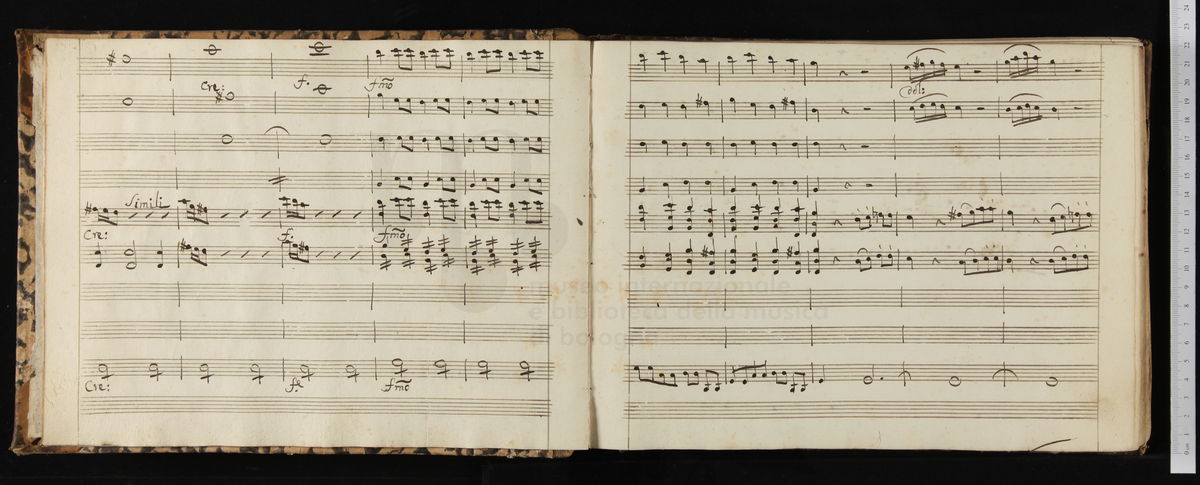 Cre:
f.
fmo
Simili
Cre:
f.
fmo
Cre:
f.
fmo
dol:
museo internazionale
e biblioteca della musica
di bologna